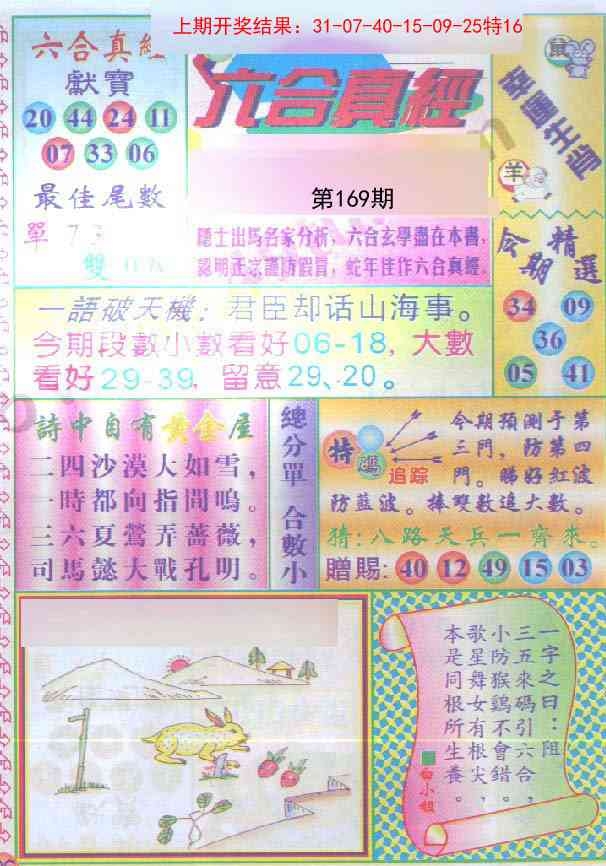 上期开奖结果：31-07-40-15-09-25特16
六合真經
獻寶
20 44 24 11
07 33 06
最佳尾數
單 7 3
雙
六合真經
第169期
隱士出馬名家分析，六合玄學盡在本書，
認明正宗謹防假冒，蛇年佳作六合真經。
鼠
幸運生肖
羊
今期精選
34 09
36
05 41
一語破天機：君臣却话山海事。
今期段數小數看好06-18, 大數
看好29-39, 留意29、20。
詩中自有黃金屋
二四沙漠大如雪，
一時都向指間鳴。
三六夏鶯弄薔薇，
司馬懿大戰孔明。
總分單 合數小
特
追踪
今期預測于第
三門，防第四
門。睇好紅波
防藍波。捧雙數追大數。
猜:八路天兵一齊來。
贈賜: 40 12 49 15 03
一字之曰：阻
三五來碼引六合，
小防猴鷄不會錯，
歌星舞女有根尖，
本是同根所生養。
白小姐